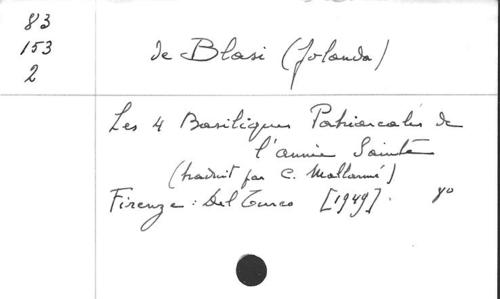 83
153
2
de Blasi (Jolanda)
Les 4 Basiliques Patriarcales de
l'année Sainte
(traduit par C. Mallarmé)
Firenze : Del Turco [1949].